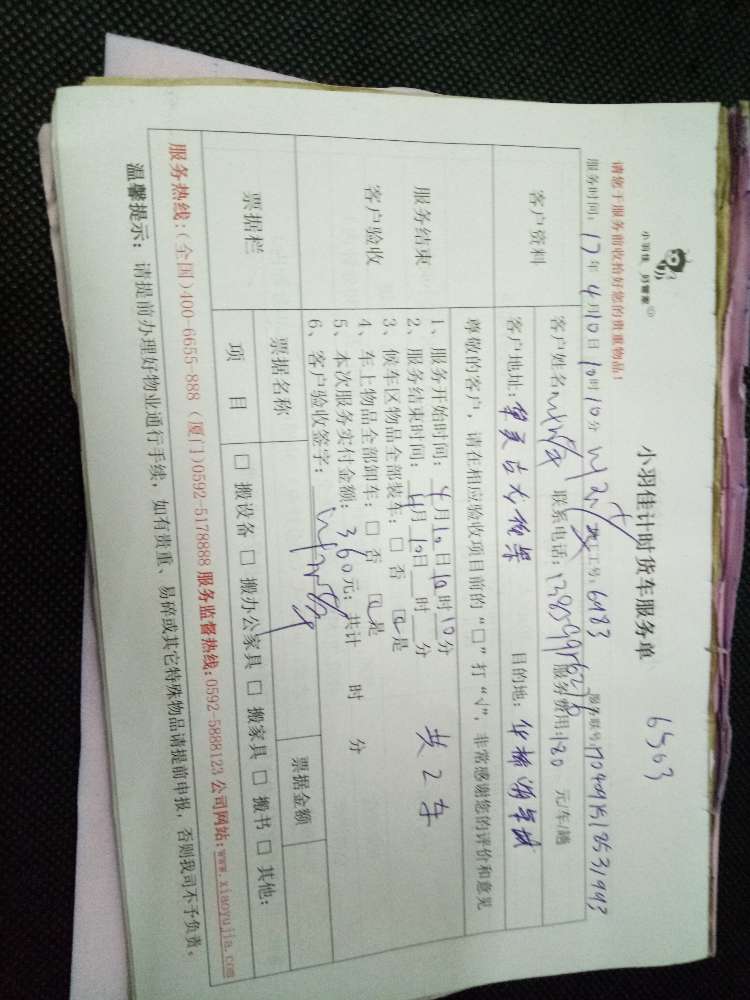 小羽佳 好管家
小羽佳计时货车服务单
6503
请您于服务前收拾好您的贵重物品！
服务时间：17年4月10日10时10分 工号：6483
客户资料
客户姓名 联系电话： 服务费用：180 元/车/趟
客户地址： 目的地：
服务结束
客户验收
尊敬的客户，请在相应验收项目前的“□”打“√”，非常感谢您的评价和意见
1、服务开始时间：4月10日10时10分
2、服务结束时间：4月10日 时 分
共2车
3、候车区物品全部装车：□ 否 ☑是
4、车上物品全部卸车：□ 否 ☑是
5、本次服务实付金额：360元；共计 时 分
6、客户验收签字：
票据栏
票据名称
票据金额
项 目
□ 搬设备 □ 搬办公家具 □ 搬家具 □ 搬书 □ 其他：
服务热线：(全国)400-6655-888 (厦门)0592-5178888 服务监督热线：0592-5888123 公司网站：www.xiaoyujia.com
温馨提示：请提前办理好物业通行手续，如有贵重、易碎或其它特殊物品请提前申报，否则我司不予负责。